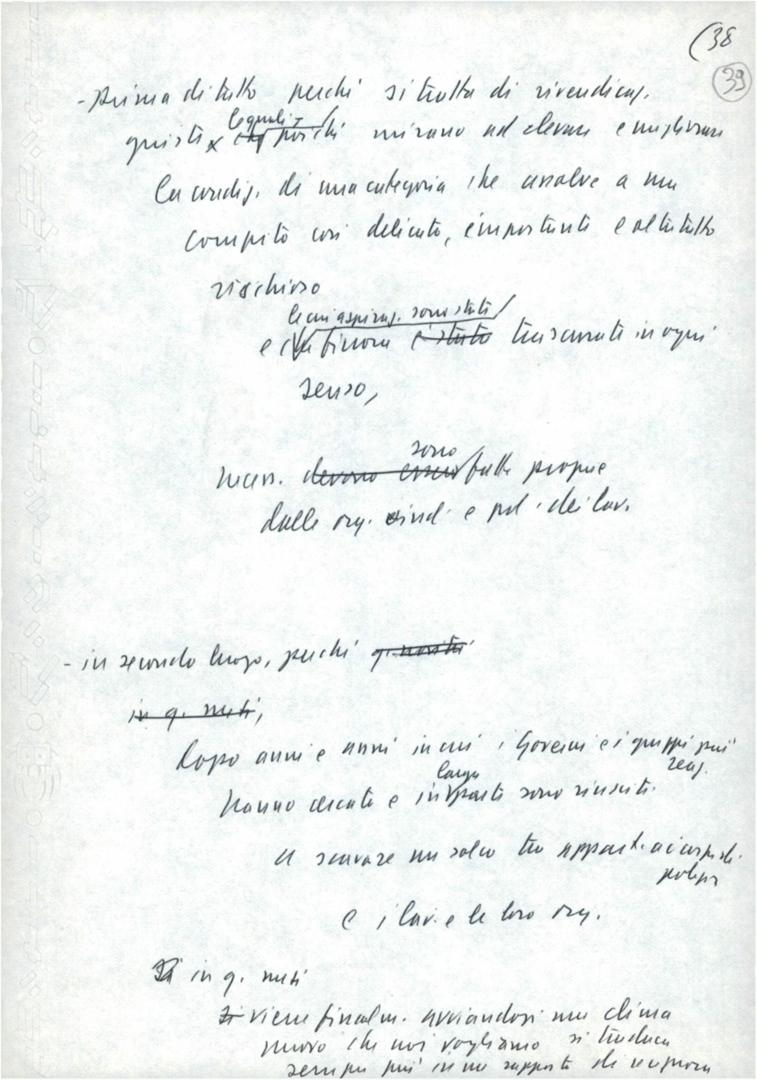 (38
39
- prima di tutto perché si tratta di rivendicaz.
queste le quali poiché mirano ad elevare e migliorare
la condiz. di una categoria che assolve a un
compito così delicato, importante e oltretutto
rischioso
le cui aspiraz. sono state
e che finora è stata trascurate in ogni
senso,
sono
devono essere fatte proprie
dalle org. sind. e pol. dei lav.
- in secondo luogo, perché
in q. mesi,
Dopo anni e anni in cui i Governi e i gruppi più
reaz.
larga
hanno cercato e in parte sono riusciti
a scavare un solco tra appart. ai corpi di
polizia
e i lav. e le loro org.
in q. mesi
si viene finalm. avviandosi un clima
nuovo che noi vogliamo si traduca
sempre più in un rapporto di